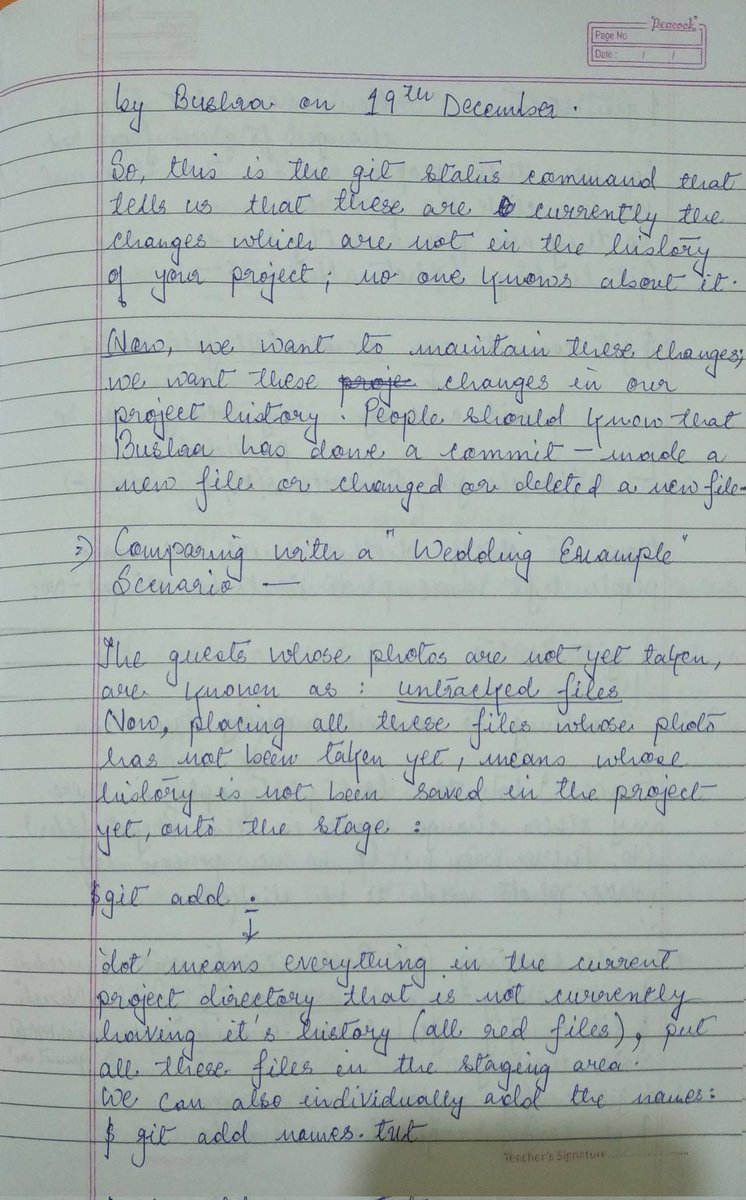 "Peacock"
Page No
Date : / /
by Bushra on 19th December.
So, this is the git status command that
tells us that these are currently the
changes which are not in the history
of your project; no one knows about it.
Now, we want to maintain these changes;
we want these proje changes in our
project history. People should know that
Bushra has done a commit - made a
new file or changed or deleted a new file.
Comparing with a "Wedding Example"
Scenario —
The guests whose photos are not yet taken,
are known as : untracked files
Now, placing all these files whose photo
has not been taken yet, means whose
history is not been saved in the project
yet, onto the stage :
$ git add .
↓
'dot' means everything in the current
project directory that is not currently
having it's history (all red files), put
all these files in the staging area.
We can also individually add the names:
$ git add names.txt
Teacher's Signature